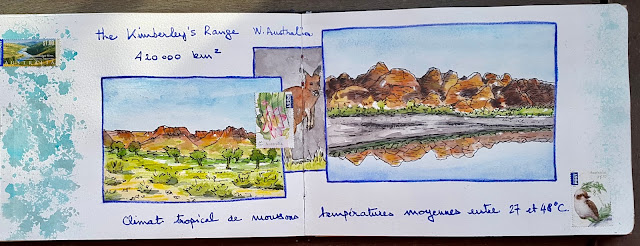 the Kimberley's Range W. Australia
420 000 km²
AUSTRALIA
Climat tropical de moussons températures moyennes entre 27 et 48°C.